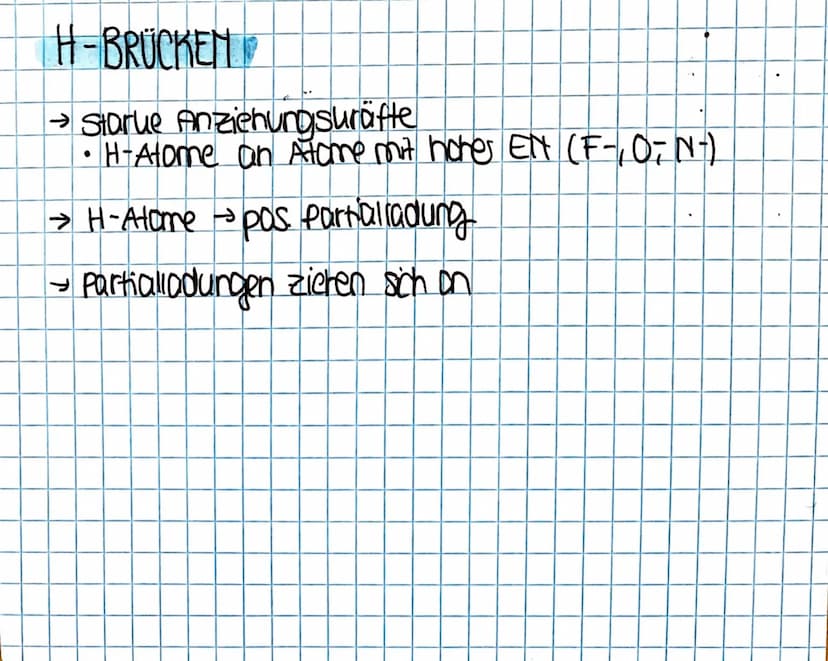 H-BRÜCKEN
→ starke Anziehungskräfte
• H-Atome an Atome mit hohes EN (F-, O-, N-)
→ H-Atome → pos. Partialladung
→ Partialladungen ziehen sich an